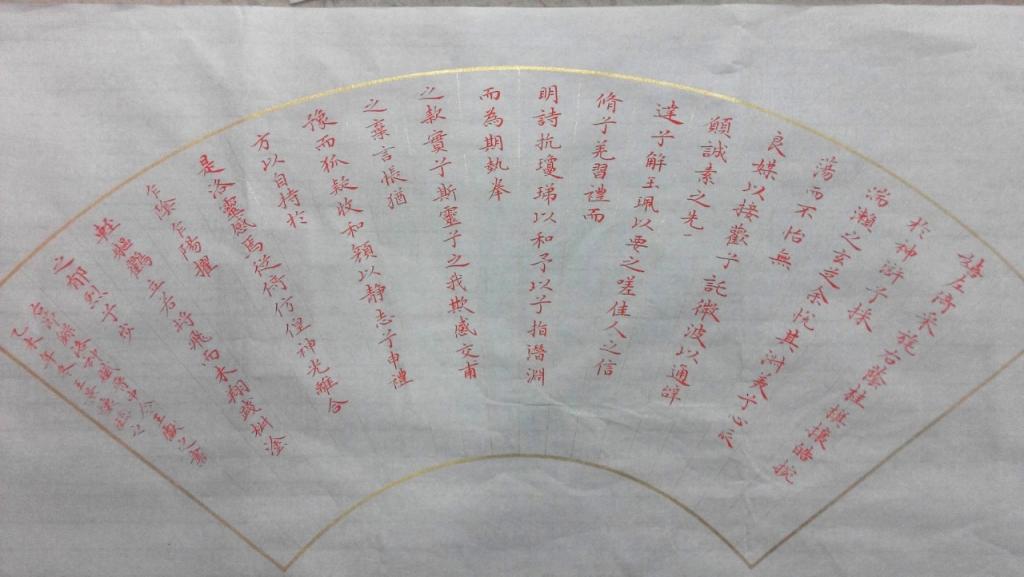 嬉左倚采旄右蔭桂旗攘皓捥
於神滸兮採
湍瀨之玄芝余悅其淑美兮心
蕩而不怡無
良媒以接歡兮託微波以通辭
願誠素之先
達兮解玉珮以要之嗟佳人之信
脩兮羌習禮而
明詩抗瓊珶以和予以兮指潛淵
而為期執眷
之款實兮斯靈兮之我欺感交甫
之棄言悵猶
豫而狐疑收和顏以靜志兮申禮
方以自持於
是洛靈感焉徙倚彷徨神光離合
乍陰乍陽擢
輕軀鶴立若將飛而未翔踐椒塗
之郁烈兮步
右節臨洛神賦
乙未年冬